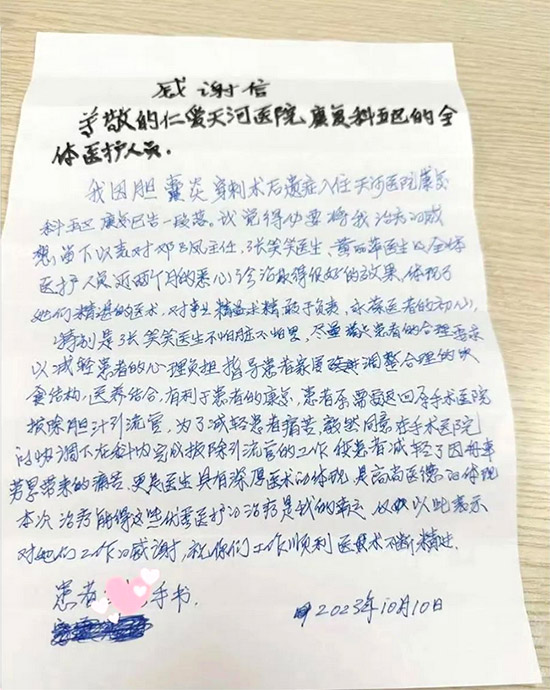 感谢信
尊敬的仁爱天河医院康复科五区的全
体医护人员.
我因胆囊炎穿刺术后遗症入住天河医院康复
科五区 康复已告一段落。我觉得必要将我治病的感
想,留下以表对邓 风主任,张笑笑医生,黄 萍医生及全体
医护人员近两个月的悉心诊治取得很好的效果,体现了
她们精湛的医术,对事业精益求精敢于负责,永葆医者的初心,
特别是张笑笑医生不怕脏不怕累,尽量 患者的合理要求
以减轻患者的心理负担 指导患者家属 调整合理的饮
食结构,医养结合,有利于患者的康复,患者亦需要返回原手术医院
拔除胆汁引流管,为了减轻患者痛苦,毅然同意在手术医院
的协调下在科内完成拔除引流管的工作 使患者减轻了因舟车
劳累带来的痛苦,更是医生具有深厚医术的体现 是高尚医德的体现
本次治疗能得这些优秀医护的治疗是我的幸运 仅以此表示
对她们工作的感谢,祝你们工作顺利 医术不断精进.
患者 手书.
2023年10月10日